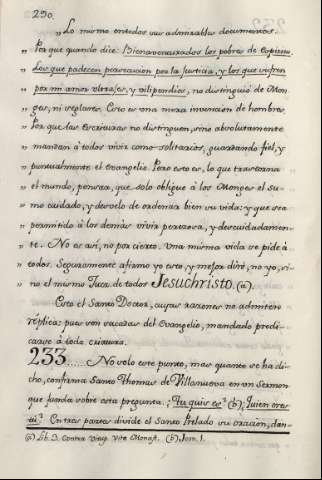 290.
„ Lo mismo en todos sus admirables documentos.
„ Pòr que quando dice Bienaventurados los pobres de Espiritu,
„ Los que padecen persecucion por la Justicia, y los que sufren
„ por mi amor ultrajes, y vilipendios, no distinguiò de Mon-
„ ges, ni seglares. Esto es una mera invencion de hombres,
„ Por que las Escrituras no distinguen, sino absolutamente
„ mandan à todos vivir como solitarios, guardando fiel, y
„ puntualmente el evangelio. Pero esto es, lo que trastorna
„ el mundo, pensar, que solo obligue à los Monges el su-
„ mo cuidado, y desvelo de ordenar bien su vida: y que sea
„ permitido à los demàs vivir perezosa, y descuidadamen-
„ te. No es asi, no por cierto. Una misma vida se pide à
„ todos. Seguramente afirmo yo esto, y mejor dirè, no yo, si-
„ no el mismo Juez de todos Jesuchristo. (a).
Esto el Santo Doctor, cuyas razones no admiten
rèplica; pues son sacadas del Evangelio, mandado predi-
car à toda criatura.
233..... No solo este punto, mas quanto se ha di-
cho, confirma Santo Thomas de Villanueva en un Sermon
que funda sobre esta pregunta: ¿Tu quis es? (b); Quien eres
tù? En tres partes divide el Santo Prelado su oracion, dan-
(a) Lib. 3. Contra Vitup. Vitæ Monast. (b) Joan. 1.